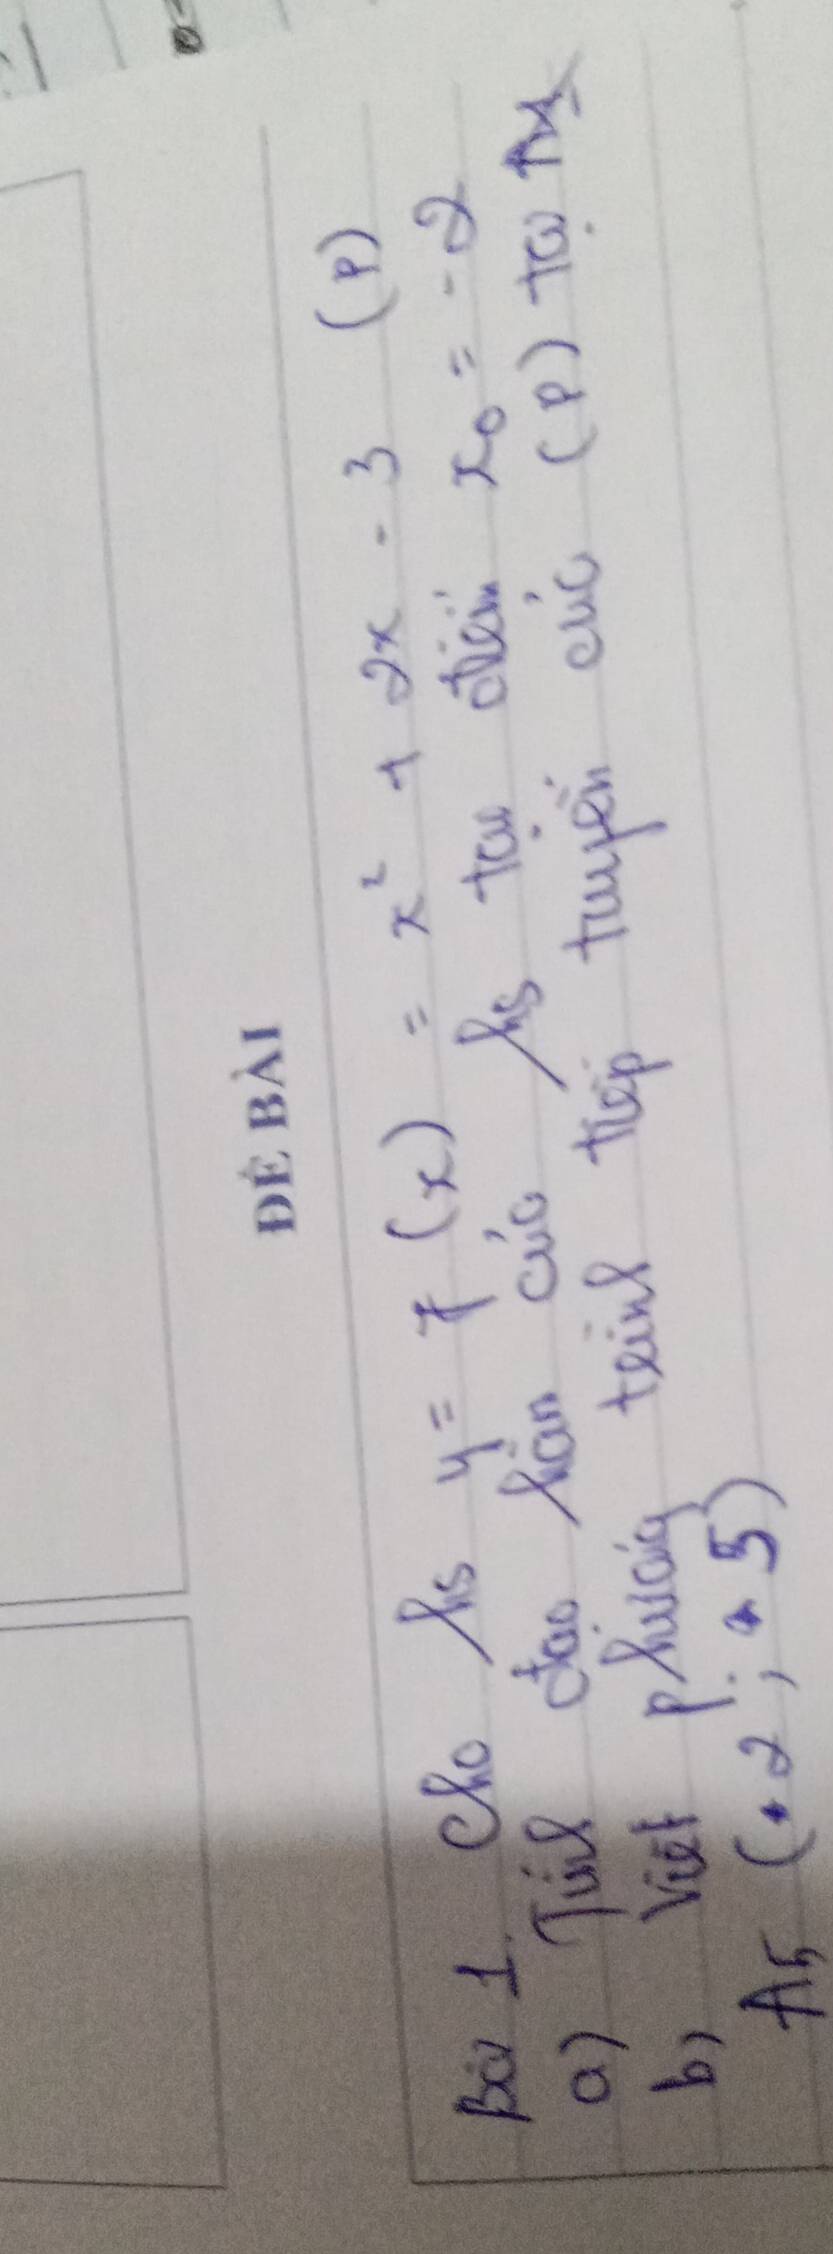 ĐỀ BÀI
Bài 1. Cho hs y = f(x) = x² + 2x - 3 (P)
a) Tính đạo hàm của hs tại điểm x₀ = -2
b, Viết phương trình tiếp tuyến của (P) tại
(2; 5)